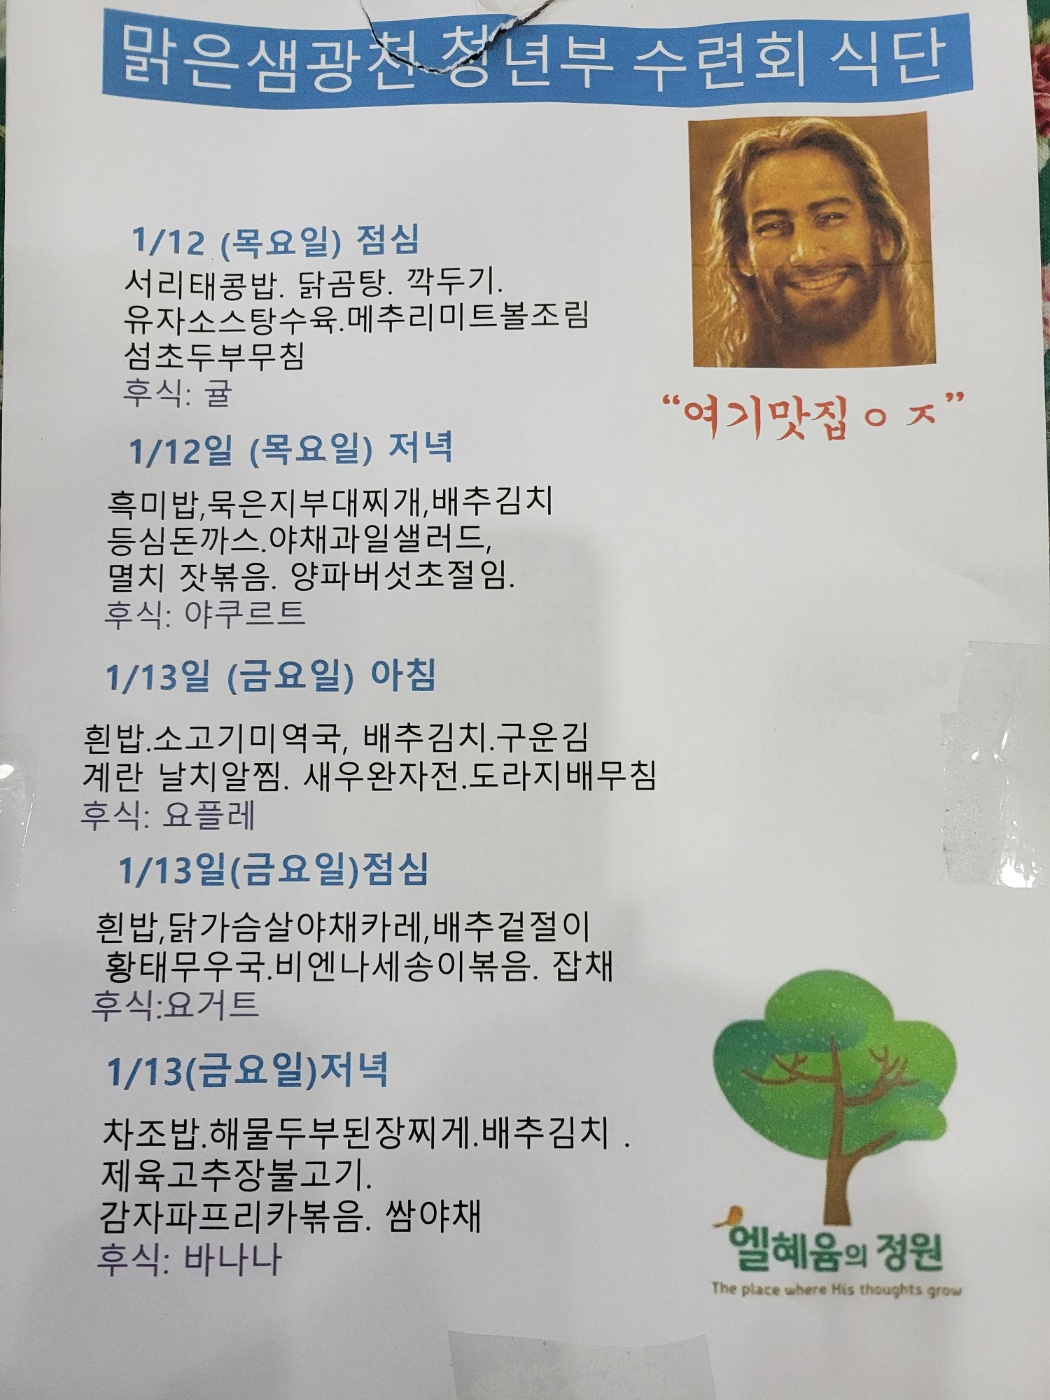 맑은샘광천 청년부 수련회 식단
1/12 (목요일) 점심
서리태콩밥. 닭곰탕. 깍두기.
유자소스탕수육.메추리미트볼조림
섬초두부무침
후식: 귤
“여기맛집ㅇ ㅈ”
1/12일 (목요일) 저녁
흑미밥,묵은지부대찌개,배추김치
등심돈까스.야채과일샐러드,
멸치 잣볶음. 양파버섯초절임.
후식: 야쿠르트
1/13일 (금요일) 아침
흰밥.소고기미역국, 배추김치.구운김
계란 날치알찜. 새우완자전.도라지배무침
후식: 요플레
1/13일(금요일)점심
흰밥,닭가슴살야채카레,배추겉절이
황태무우국.비엔나세송이볶음. 잡채
후식:요거트
1/13(금요일)저녁
차조밥.해물두부된장찌게.배추김치 .
제육고추장불고기.
감자파프리카볶음. 쌈야채
후식: 바나나
엘혜윰의 정원
The place where His thoughts grow